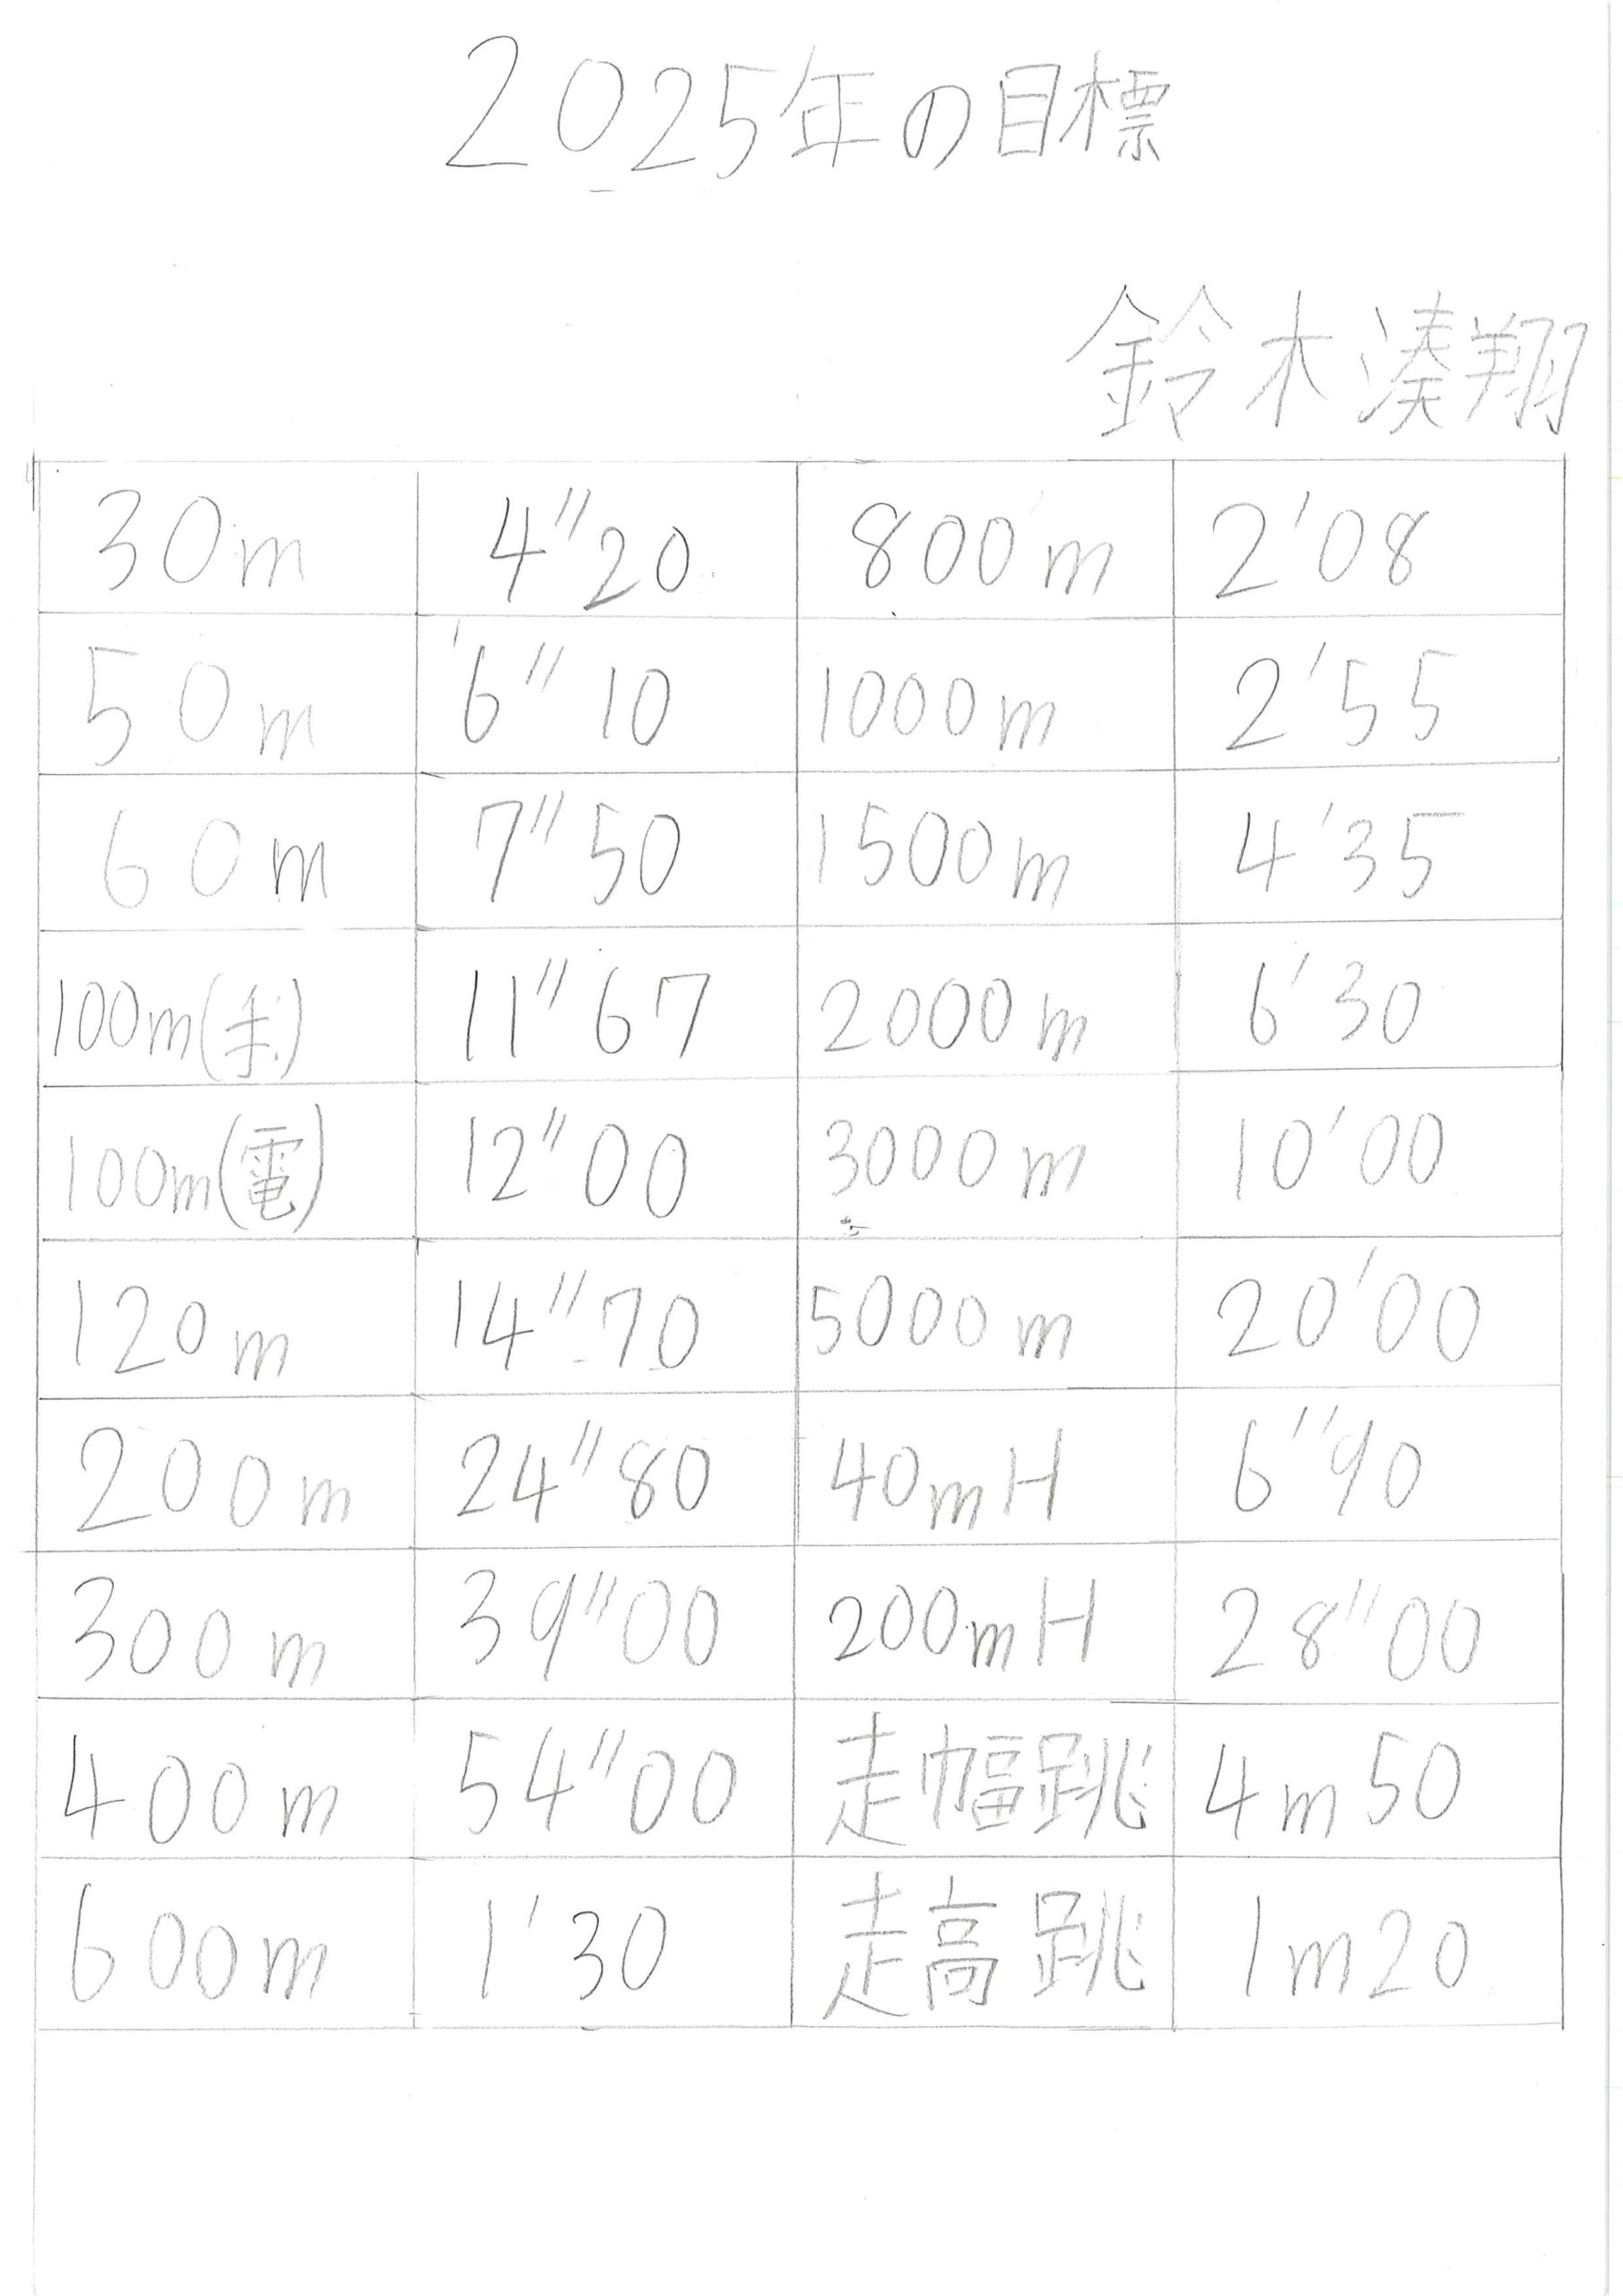 2025年の目標
鈴木湊翔
30m 4"20 800m 2'08
50m 6"10 1000m 2'55
60m 7"50 1500m 4'35
100m(手) 11"67 2000m 6'30
100m(電) 12"00 3000m 10'00
120m 14"70 5000m 20'00
200m 24"80 40mH 6"90
300m 39"00 200mH 28"00
400m 54"00 走幅跳 4m50
600m 1'30 走高跳 1m20